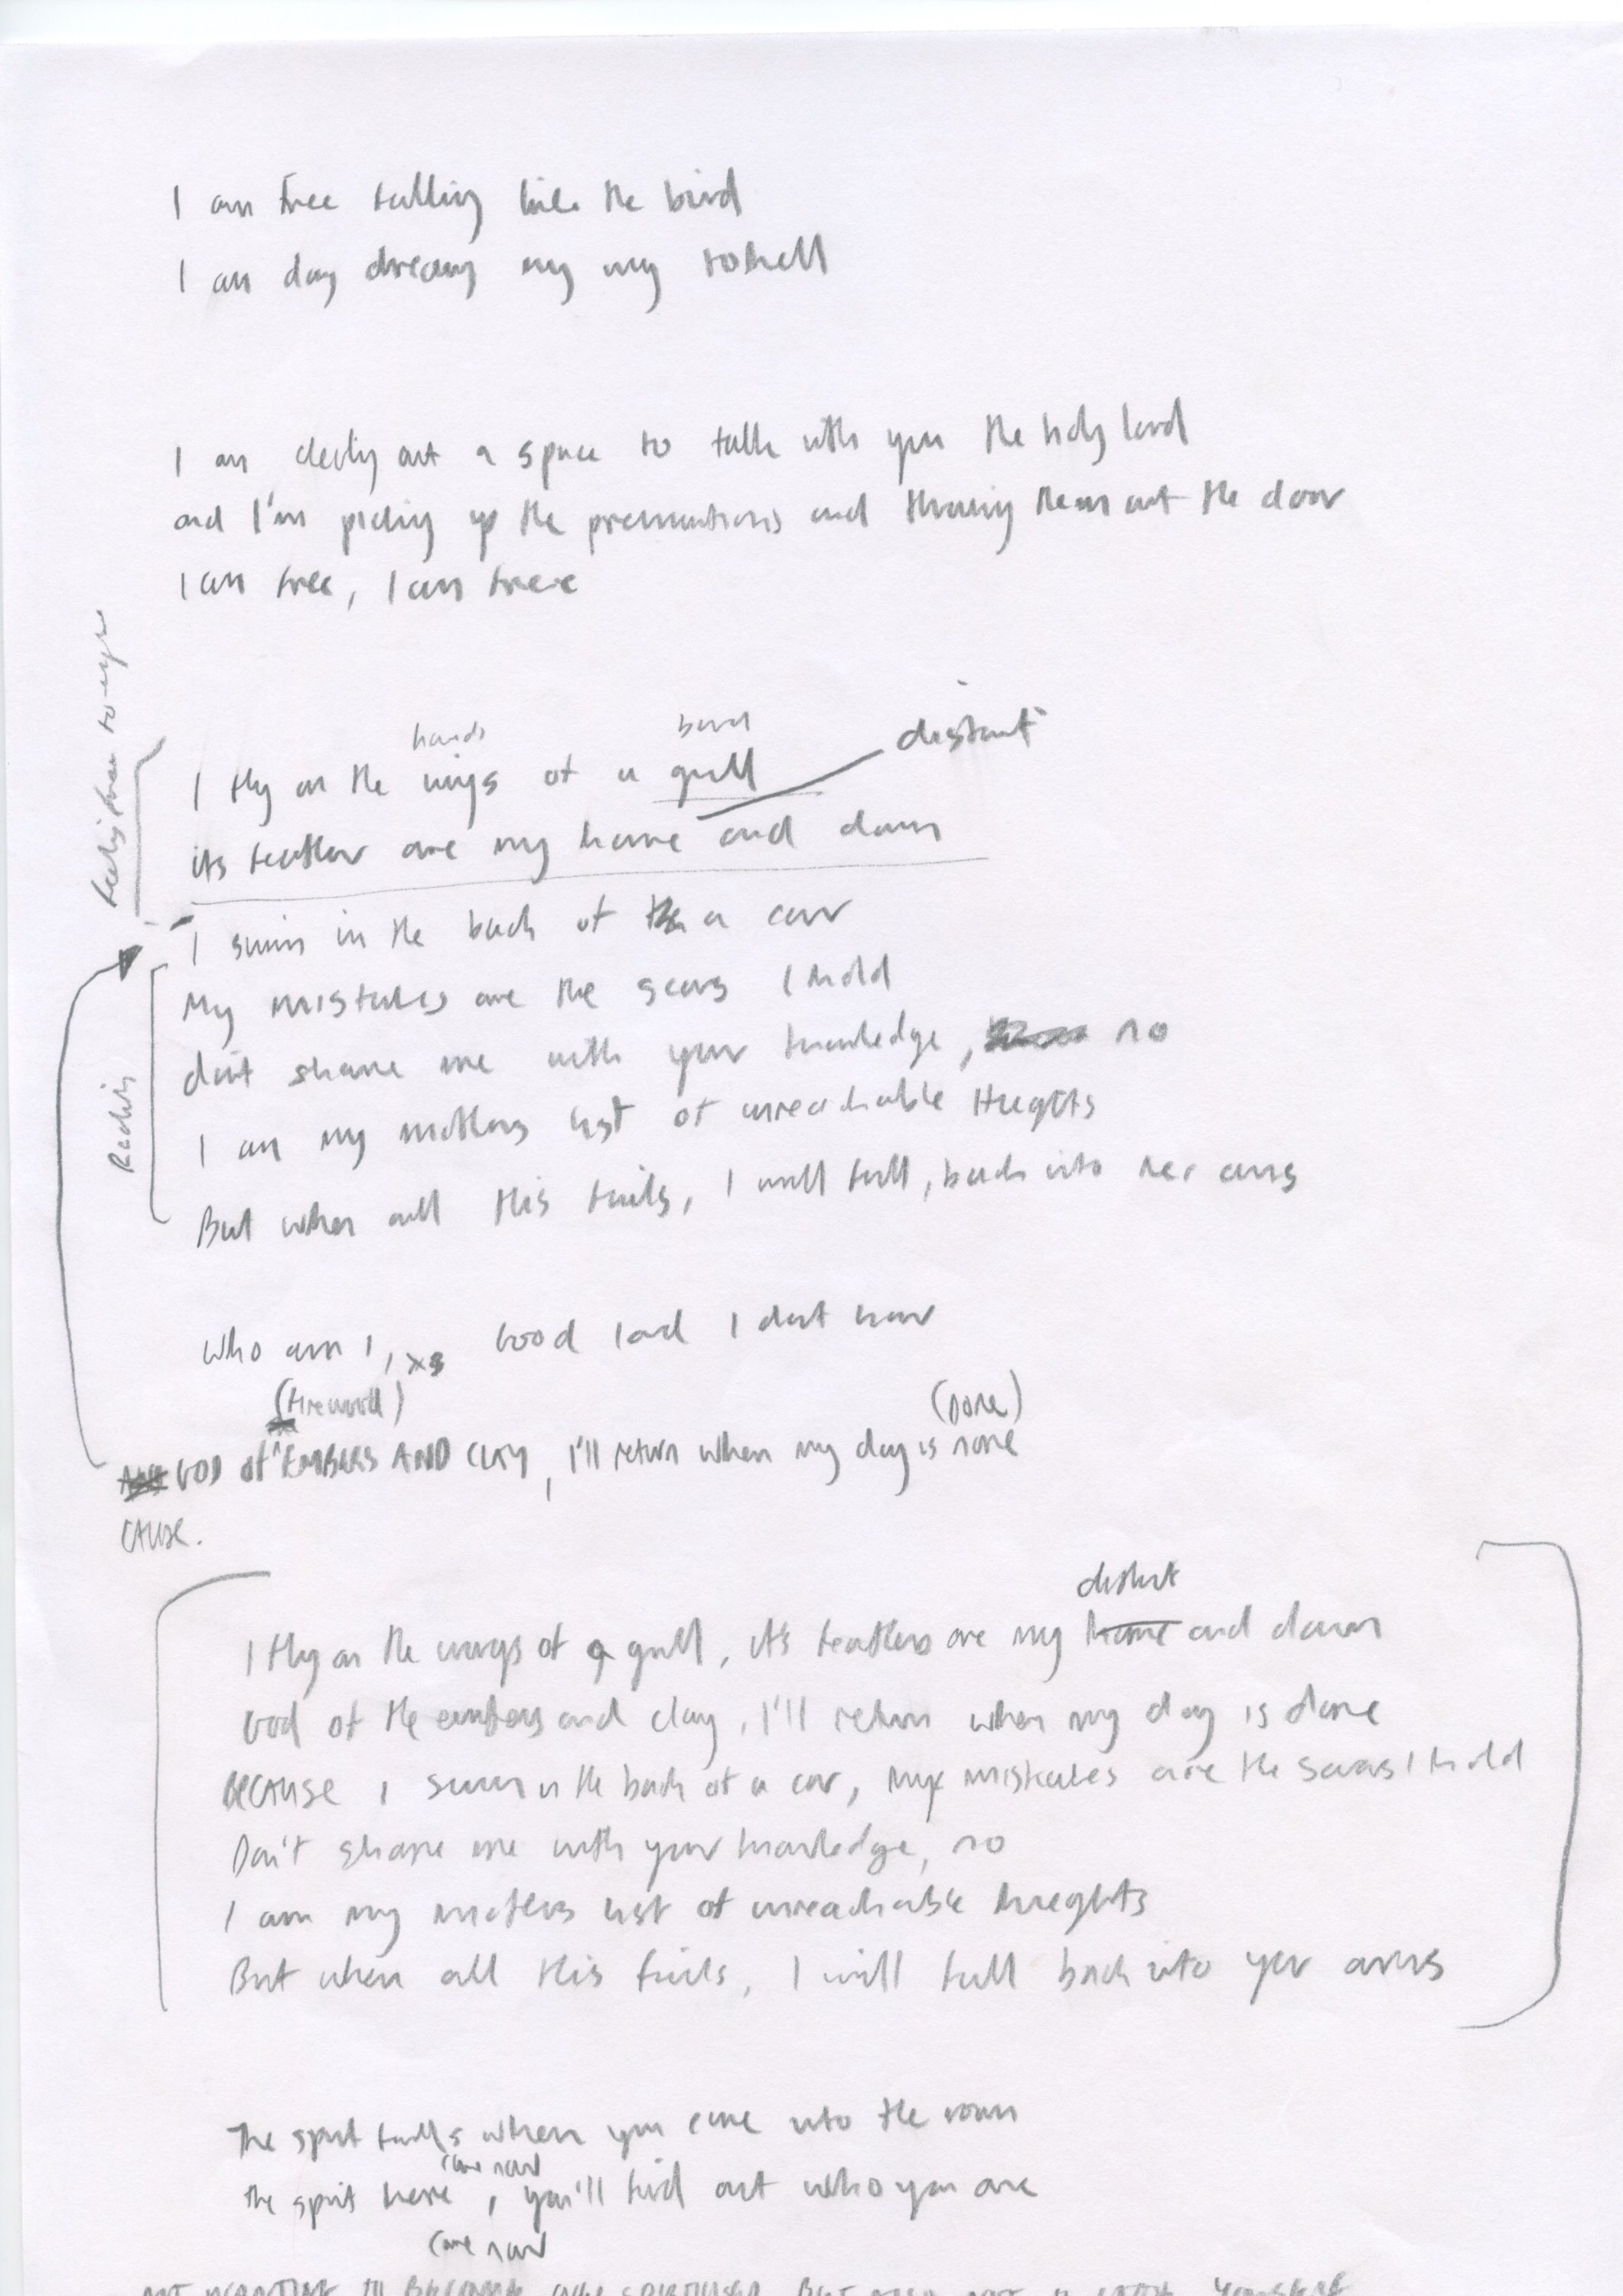 I am free falling like the bird
I am day dreamy my my to hell
I am clearly out a space to talk with you the holy lord
and I'm picking up the premonitions and throwing them out the door
I am free, I am free
hands
distant
I fly on the wings of a gull
its feathers are my home and dawn
I swim in the back of a car
My mistakes are the scars I hold
don't shame me with your knowledge, no
I am my mothers list of unreachable Heights
But when all this fails, I will fall, back into her arms
Who am I, Good lord I dont know
(firewood) (done)
GOD of EMBERS AND CLAY, I'll return when my day is none
CAUSE.
distant
I fly on the wings of a gull, it's feathers are my home and dawn
God of the embers and clay, I'll return when my day is done
BECAUSE I swim in the back of a car, my mistakes are the scars I hold
Don't shame me with your knowledge, no
I am my mothers list of unreachable heights
But when all this fails, I will fall back into your arms
The spirit falls when you come into the room
come now
the spirit here, you'll find out who you are
come now